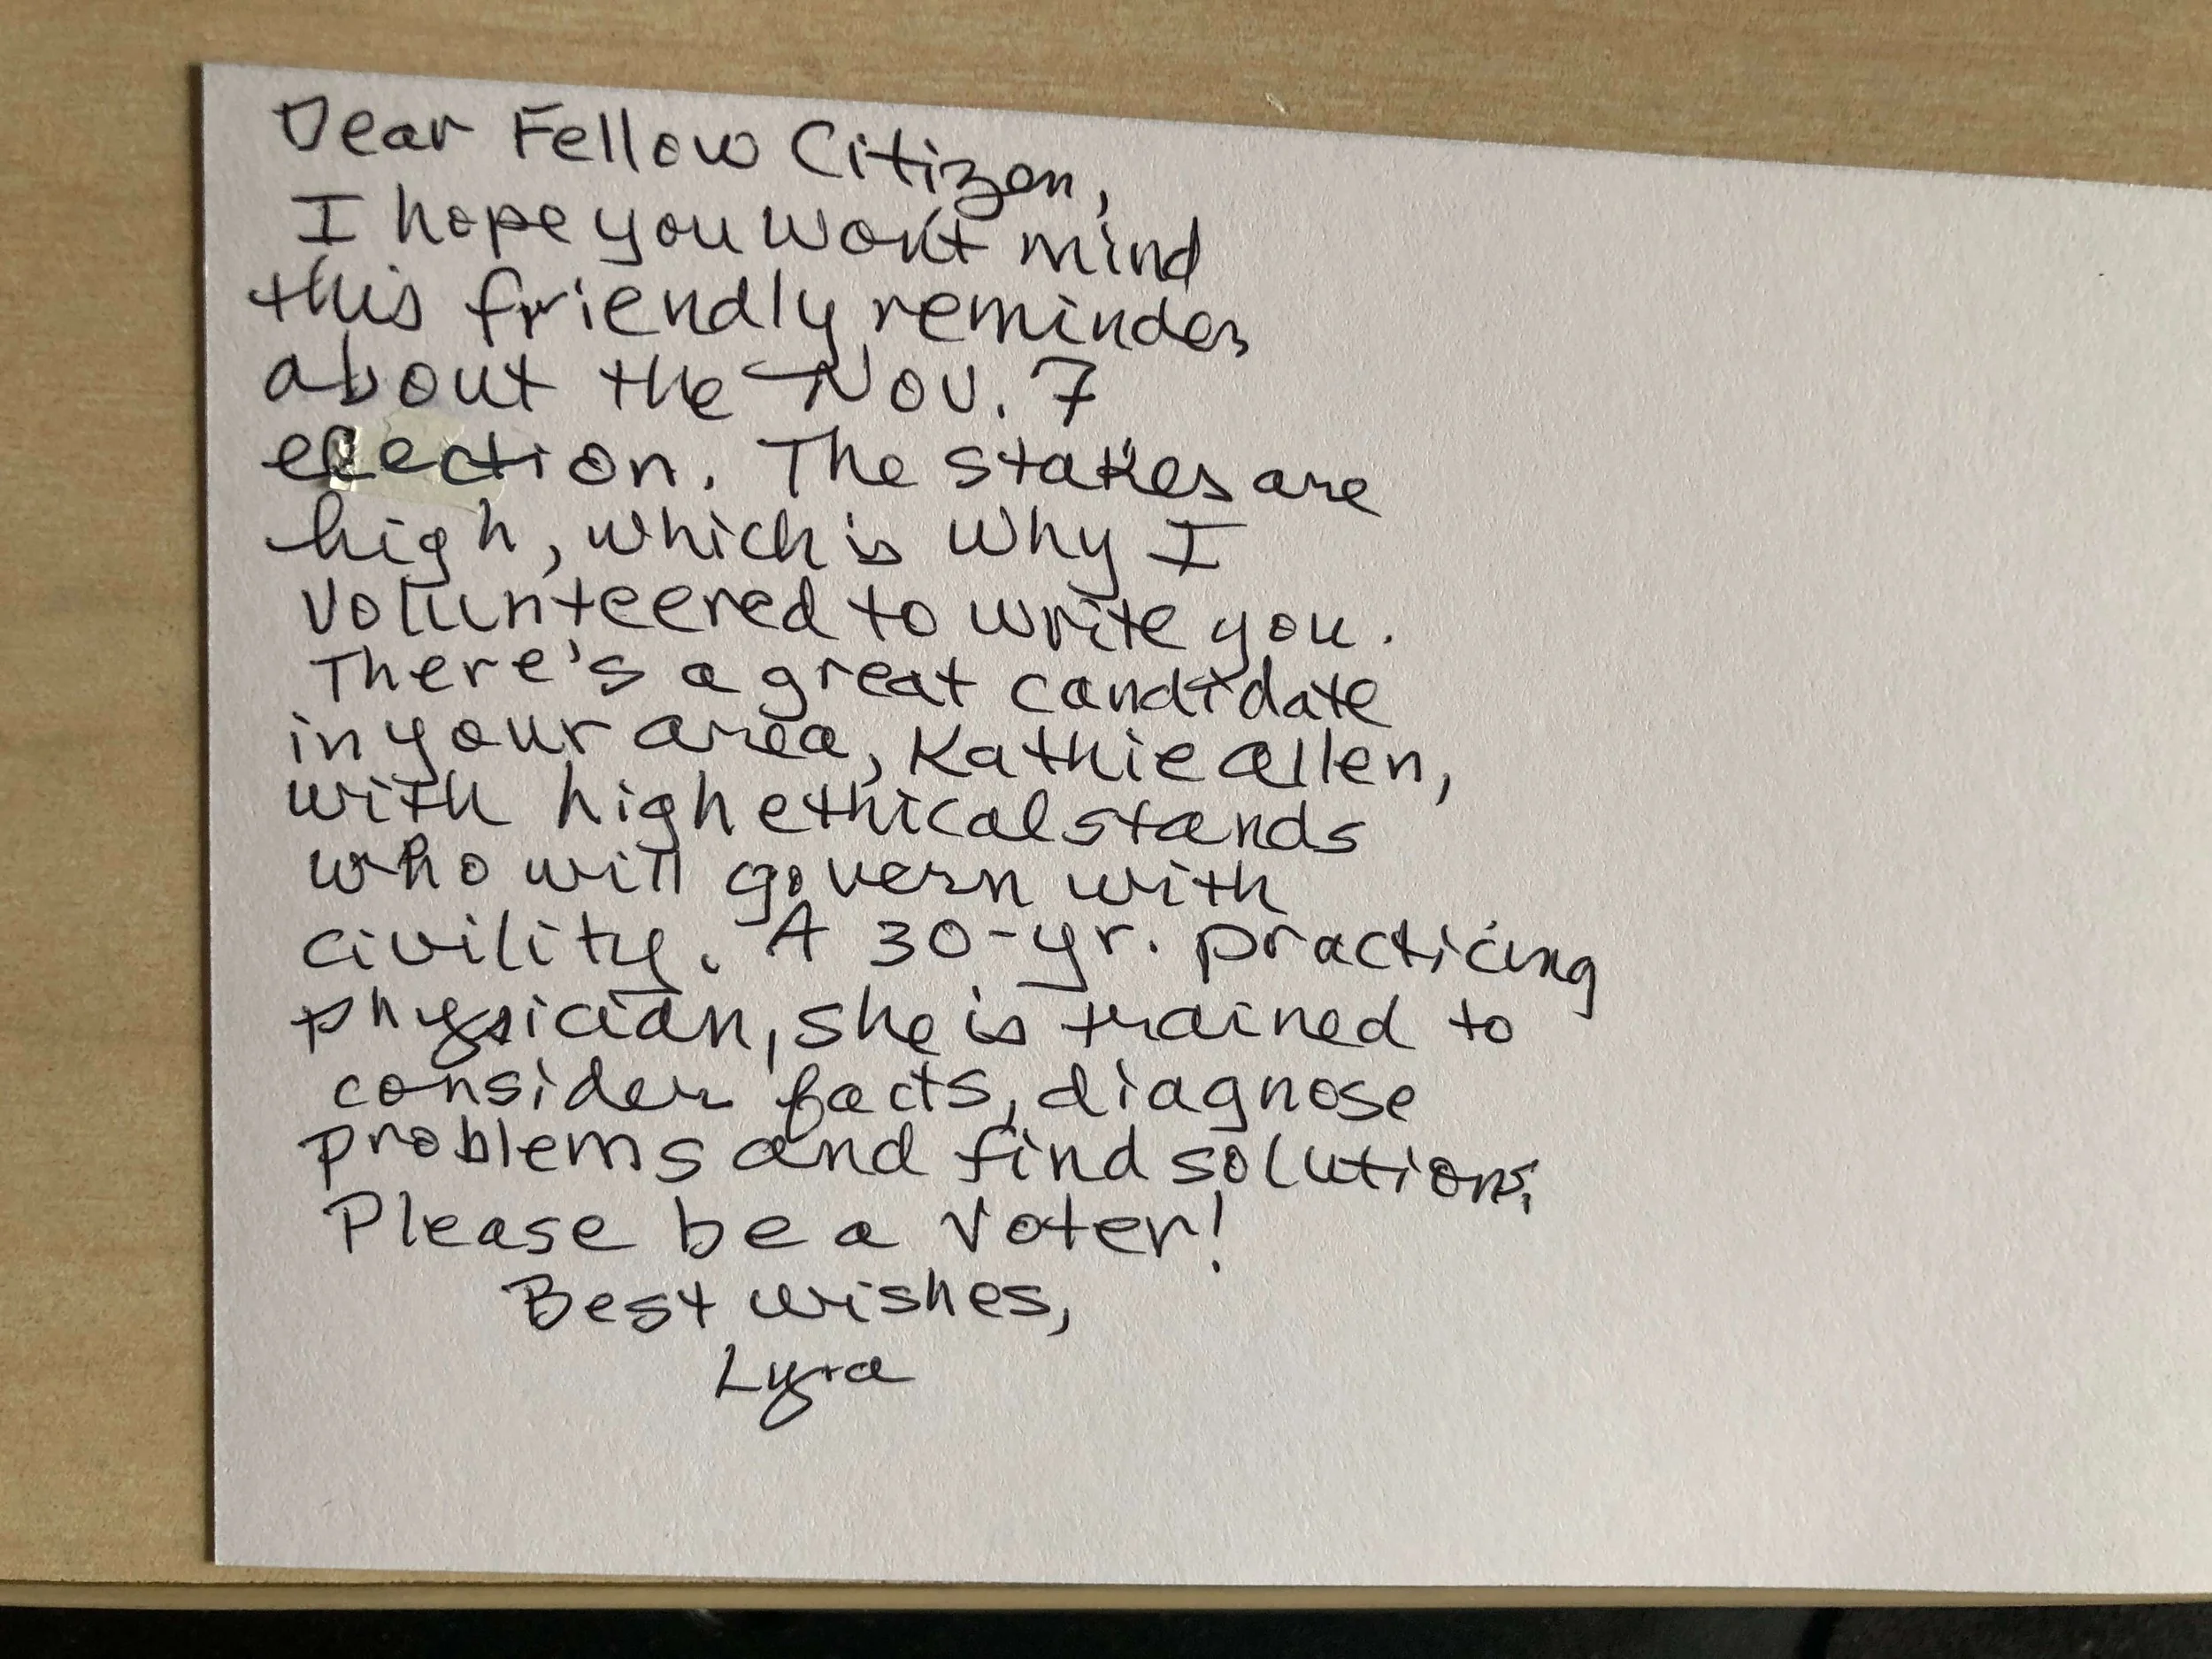 Dear Fellow Citizen,
I hope you won't mind
this friendly reminder
about the Nov. 7
election. The stakes are
high, which is why I
volunteered to write you.
There's a great candidate
in your area, Kathie Allen,
with high ethical stands
who will govern with
civility. A 30-yr. practicing
physician, she is trained to
consider facts, diagnose
problems and find solutions.
Please be a voter!
Best wishes,
Lyra